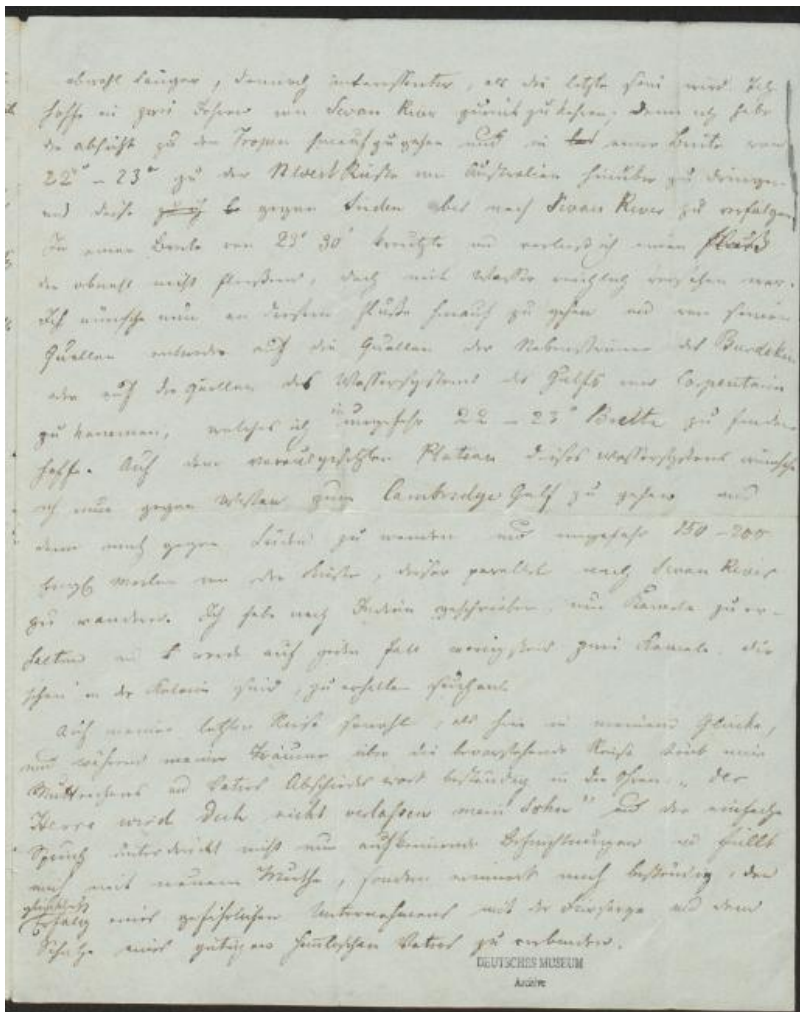 obwohl länger, dennoch interessanter, als die letzte sein wird. Ich
hoffe in zwei Jahren von Swan River zurückzukehren; denn ich habe
die Absicht zu den Tropen hinaufzugehen und in einer Breite von
22° – 23° zu der NWest Küste von Australien hinüber zu dringen
und diese gegen Süden aber nach Swan River zu verfolgen
In einer Breite von 23° 30' kreuzte und verließ ich einen Fluß
der obwohl nicht fließend, doch mit Wasser reichlich versehen war.
Ich wünsche nun an diesem Fluße hinauf zu gehen und von seinen
Quellen entweder auf die Quellen der Nebenströme des Burdekin
oder auf die Quellen des Wassersystems des Golfs von Carpentaria
zu kommen, welches ich in ungefähr 22 – 23° Breite zu finden
hoffe. Auf dem vorausgesetzten Plateau dieses Wassersystems wünsche
ich nun gegen Westen zum Cambridge Golf zu gehen und
dann mich gegen Süden zu wenden und ungefähr 150 – 200
engl Meilen von der Küste, dieser parallel nach Swan River
zu wandern. Ich habe nach Indien geschrieben um Kamele zu er-
halten und werde auf jeden Fall wenigstens zwei Kamele, die
schon in der Kolonie sind, zu erhalten suchen.
Auf meiner letzten Reise sowohl, als hier in meinem Glücke,
und während meiner Träume über die bevorstehende Reise
Mütterchens und Vaters Abschiedswort beständig in die Ohren: „Der
Herr wird Dich nicht verlassen mein Sohn" und der einfache
Spruch unterdrückt nicht nur aufkeimende Befürchtungen und füllt
mich mit neuem Muthe, sondern erinnert mich beständig, den
glücklichen
Erfolg eines gefährlichen Unternehmens mit der Fürsorge und dem
Schutze eines gütigen himmlischen Vaters zu verbinden.
DEUTSCHES MUSEUM
Archive